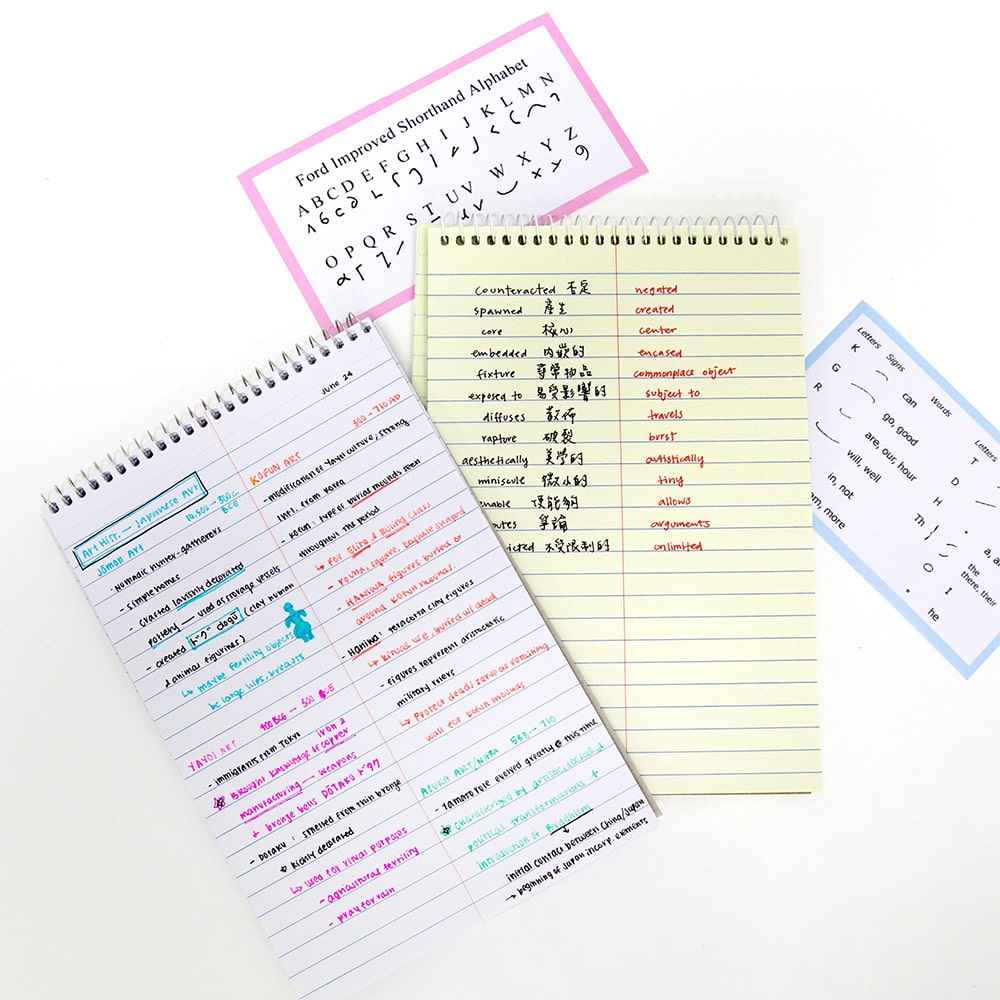 Ford Improved Shorthand Alphabet
A B C D E F G H I J K L M N
O P Q R S T U V W X Y Z
counteracted 否定 negated
spawned 產生 created
core 核心 center
embedded 內嵌的 encased
fixture 尋常物品 commonplace object
exposed to 易受影響的 subject to
diffuses 散布 travels
rapture 破裂 burst
aesthetically 美學的 artistically
miniscule 微小的 tiny
enable 使能夠 allows
爭論 arguments
不受限制的 unlimited
Letters Signs Words Letters
K can T
G go, good D
R are, our, hour H
will, well Th
in, not
more
a, a
the
there, their
O
he
June 24
Art Hist. — Japanese Art
Jōmon Art
- Nomadic hunter-gatherers
- simple homes
- crafted lavishly decorated
pottery — used as storage vessels
- created dogū (clay human
& animal figurines)
↳ maybe fertility objects
↳ large hips, breasts
YAYOI ART
- immigrants from Tokyo
Brought knowledge of iron & copper
manufacturing — weapons
+ bronze bells DŌTAKU
- DOTAKU: from thin bronze
Richly decorated
↳ used for ritual purposes
- agricultural fertility
- pray for rain
300 - 710 AD
KOFUN ART
- modification of Yayoi culture, strong
infl. from Korea
- Kofun: type of burial mounds seen
throughout the period
↳ For elite & Ruling class
- Round, square, keyhole shaped
- HANIWA figures buried @
around Kofun mounds.
- Haniwa: terracotta clay figures
↳ Ritual use, buried w/ dead
- figures represent aristocratic
military rulers
↳ Protect dead/ serve as retaining
wall for burial mounds
ASUKA ART/NARA
- Yamato rule evolved greatly @ this time
Characterized by artistic, social &
political transformations +
introduction of Buddhism
initial contact between China/Japan
→ beginning of Japan incorp. elements